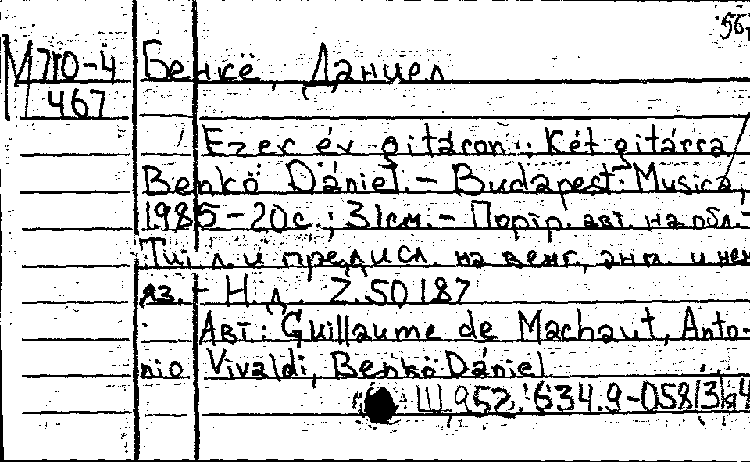 56
МПО-4 Бенкё, Даниел
467
Ezer év gitáron : Két gitárra
Benkö Dániel. – Budapest: Musica,
1985 – 20с.; 31см. – Портр. авт. на обл. –
Тит. л. и предисл. на венг., англ. и нем.
яз. – Н. д. Z.50187
Авт: Guillaume de Machaut, Anto-
nio Vivaldi, Benkö Dániel
Щ952.634.9-058